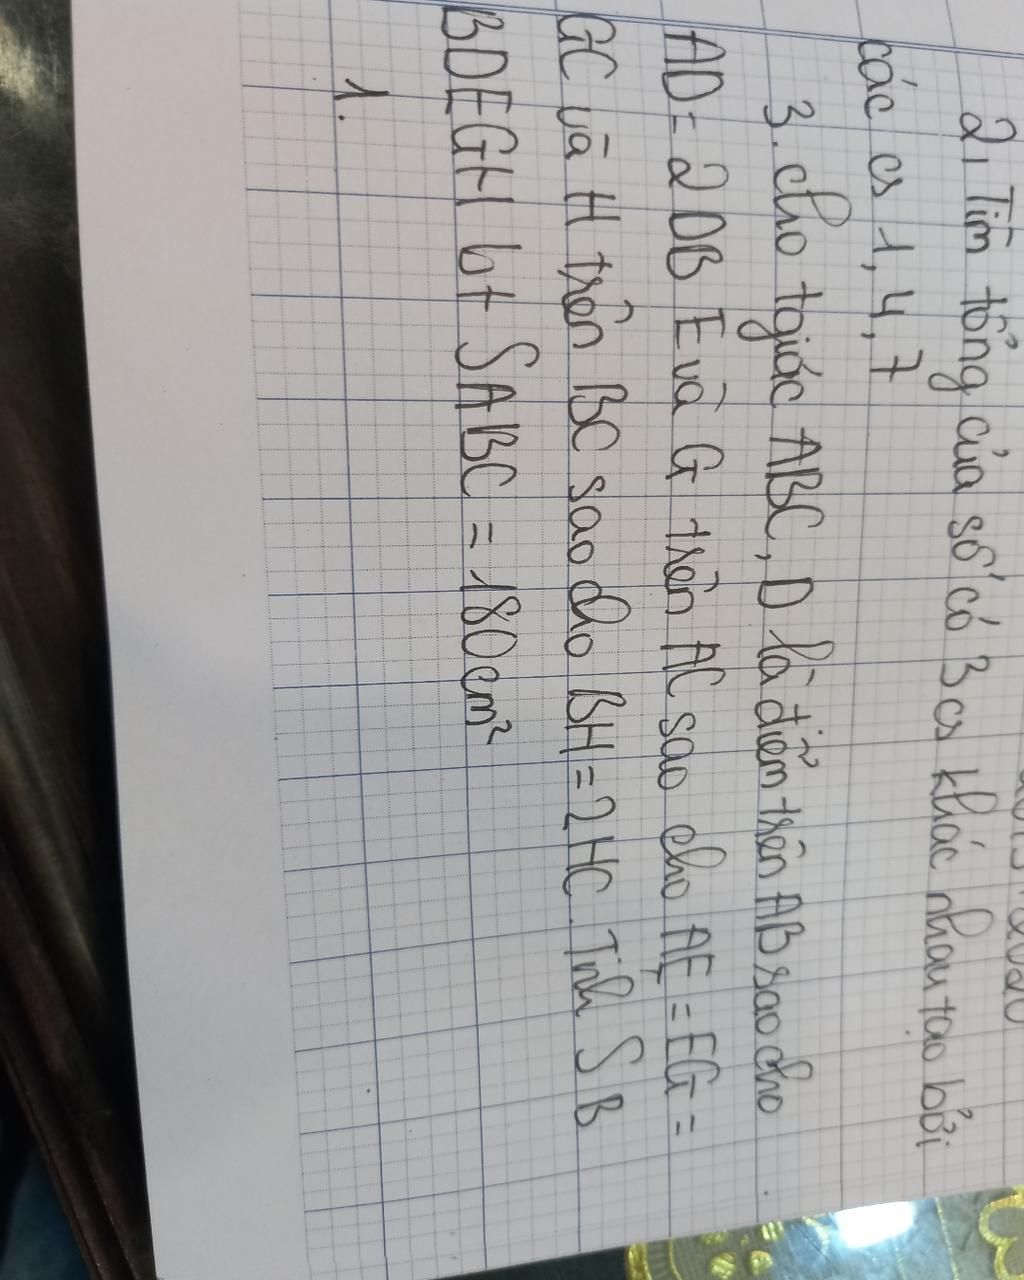 2, Tìm tổng của số có 3 cs khác nhau tạo bởi
các cs 1, 4, 7
3. cho tgiác ABC, D là điểm trên AB sao cho
AD = 2 DB E và G trên AC sao cho AE = EG =
GC và H trên BC sao cho BH = 2 HC. Tính S B
BDEGH bt SABC = 180 cm²
1.